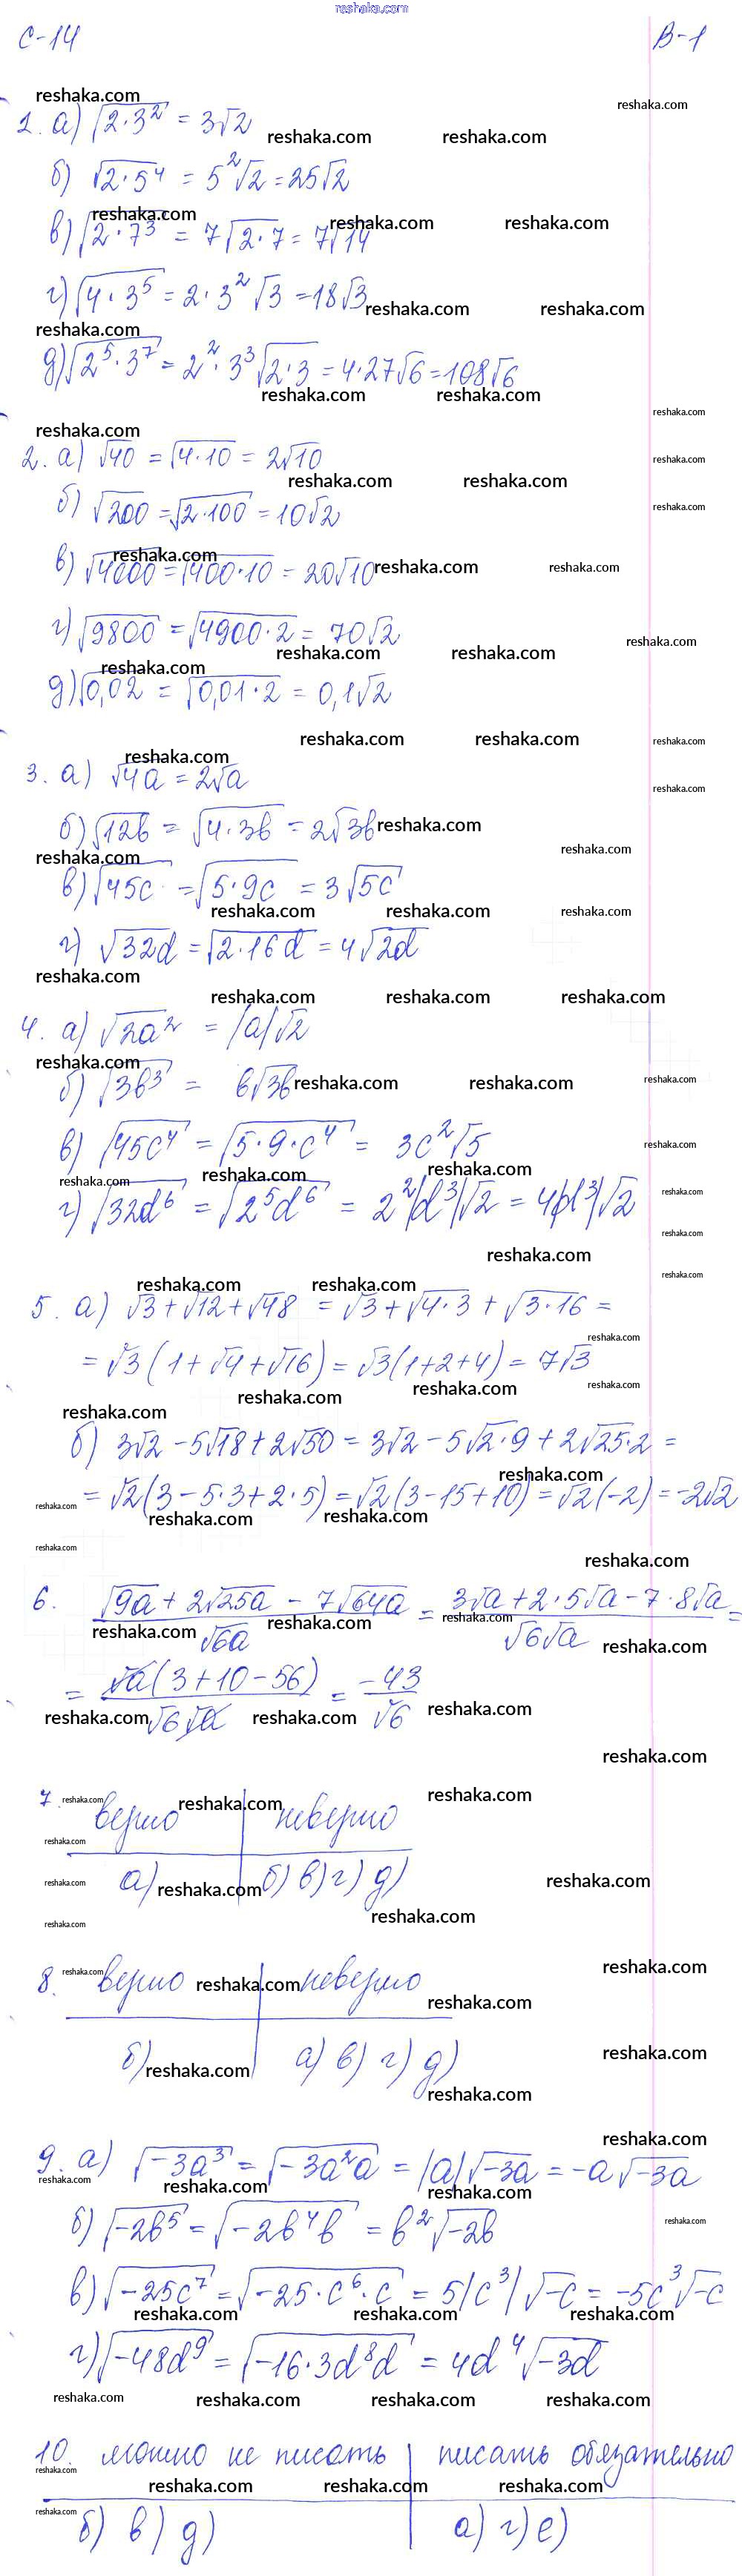 reshaka.com
С-14 В-1
1. а) √(2·3²) = 3√2
б) √(2·5⁴) = 5²√2 = 25√2
в) √(2·7³) = 7√(2·7) = 7√14
г) √(4·3⁵) = 2·3²√3 = 18√3
д) √(2⁵·3⁷) = 2²·3³√(2·3) = 4·27√6 = 108√6
2. а) √40 = √(4·10) = 2√10
б) √200 = √(2·100) = 10√2
в) √4000 = √(400·10) = 20√10
г) √9800 = √(4900·2) = 70√2
д) √0,02 = √(0,01·2) = 0,1√2
3. а) √4a = 2√a
б) √12b = √(4·3b) = 2√3b
в) √45c = √(5·9c) = 3√5c
г) √32d = √(2·16d) = 4√2d
4. а) √2a² = |a|√2
б) √3b³ = b√3b
в) √45c⁴ = √(5·9·c⁴) = 3c²√5
г) √32d⁶ = √2⁵d⁶ = 2²|d³|√2 = 4|d³|√2
5. а) √3 + √12 + √48 = √3 + √(4·3) + √(3·16) =
= √3(1 + √4 + √16) = √3(1+2+4) = 7√3
б) 3√2 − 5√18 + 2√50 = 3√2 − 5√(2·9) + 2√(25·2) =
= √2(3 − 5·3 + 2·5) = √2(3 − 15 + 10) = √2(−2) = −2√2
6. (√9a + 2√25a − 7√64a)/√6a = (3√a + 2·5√a − 7·8√a)/(√6√a) =
= √a(3 + 10 − 56)/(√6√a) = −43/√6
7. верно | неверно
а) | б) в) г) д)
8. верно | неверно
б) | а) в) г) д)
9. а) √−3a³ = √−3a²a = |a|√−3a = −a√−3a
б) √−2b⁵ = √−2b⁴b = b²√−2b
в) √−25c⁷ = √(−25·c⁶·c) = 5|c³|√−c = −5c³√−c
г) √−48d⁹ = √(−16·3d⁸d) = 4d⁴√−3d
10. можно не писать | писать обязательно
б) в) д) | а) г) е)